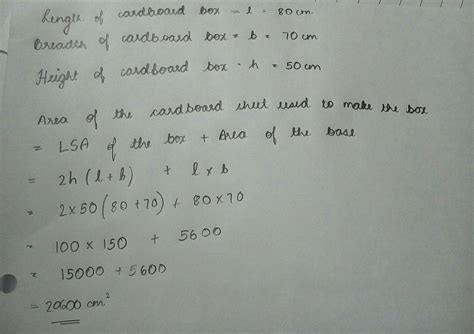 Length of cardboard box = l = 80 cm
Breadth of cardboard box = b = 70 cm
Height of cardboard box = h = 50 cm
Area of the cardboard sheet used to make the box
= LSA of the box + Area of the base
= 2h (l + b) + l x b
= 2 x 50 (80 + 70) + 80 x 70
= 100 x 150 + 5600
= 15000 + 5600
= 20600 cm²